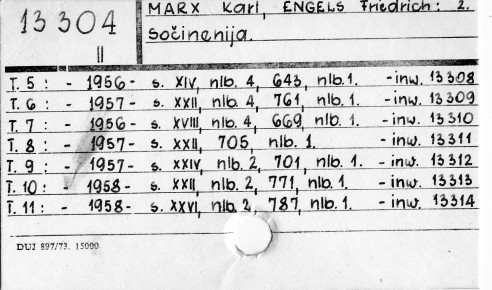 13304
II
MARX Karl, ENGELS Friedrich: 2.
sočinenija.
T. 5 : - 1956 - s. XIV, nlb. 4, 643, nlb. 1. - inw. 13308
T. 6 : - 1957 - s. XXII, nlb. 4, 761, nlb. 1. - inw. 13309
T. 7 : - 1956 - s. XVIII, nlb. 4, 669, nlb. 1. - inw. 13310
T. 8 : - 1957 - s. XXII, 705, nlb. 1. - inw. 13311
T. 9 : - 1957 - s. XXIV, nlb. 2, 701, nlb. 1. - inw. 13312
T. 10 : - 1958 - s. XXII, nlb. 2, 771, nlb. 1. - inw. 13313
T. 11 : - 1958 - s. XXVI, nlb. 2, 787, nlb. 1. - inw. 13314
DUJ 897/73. 15000